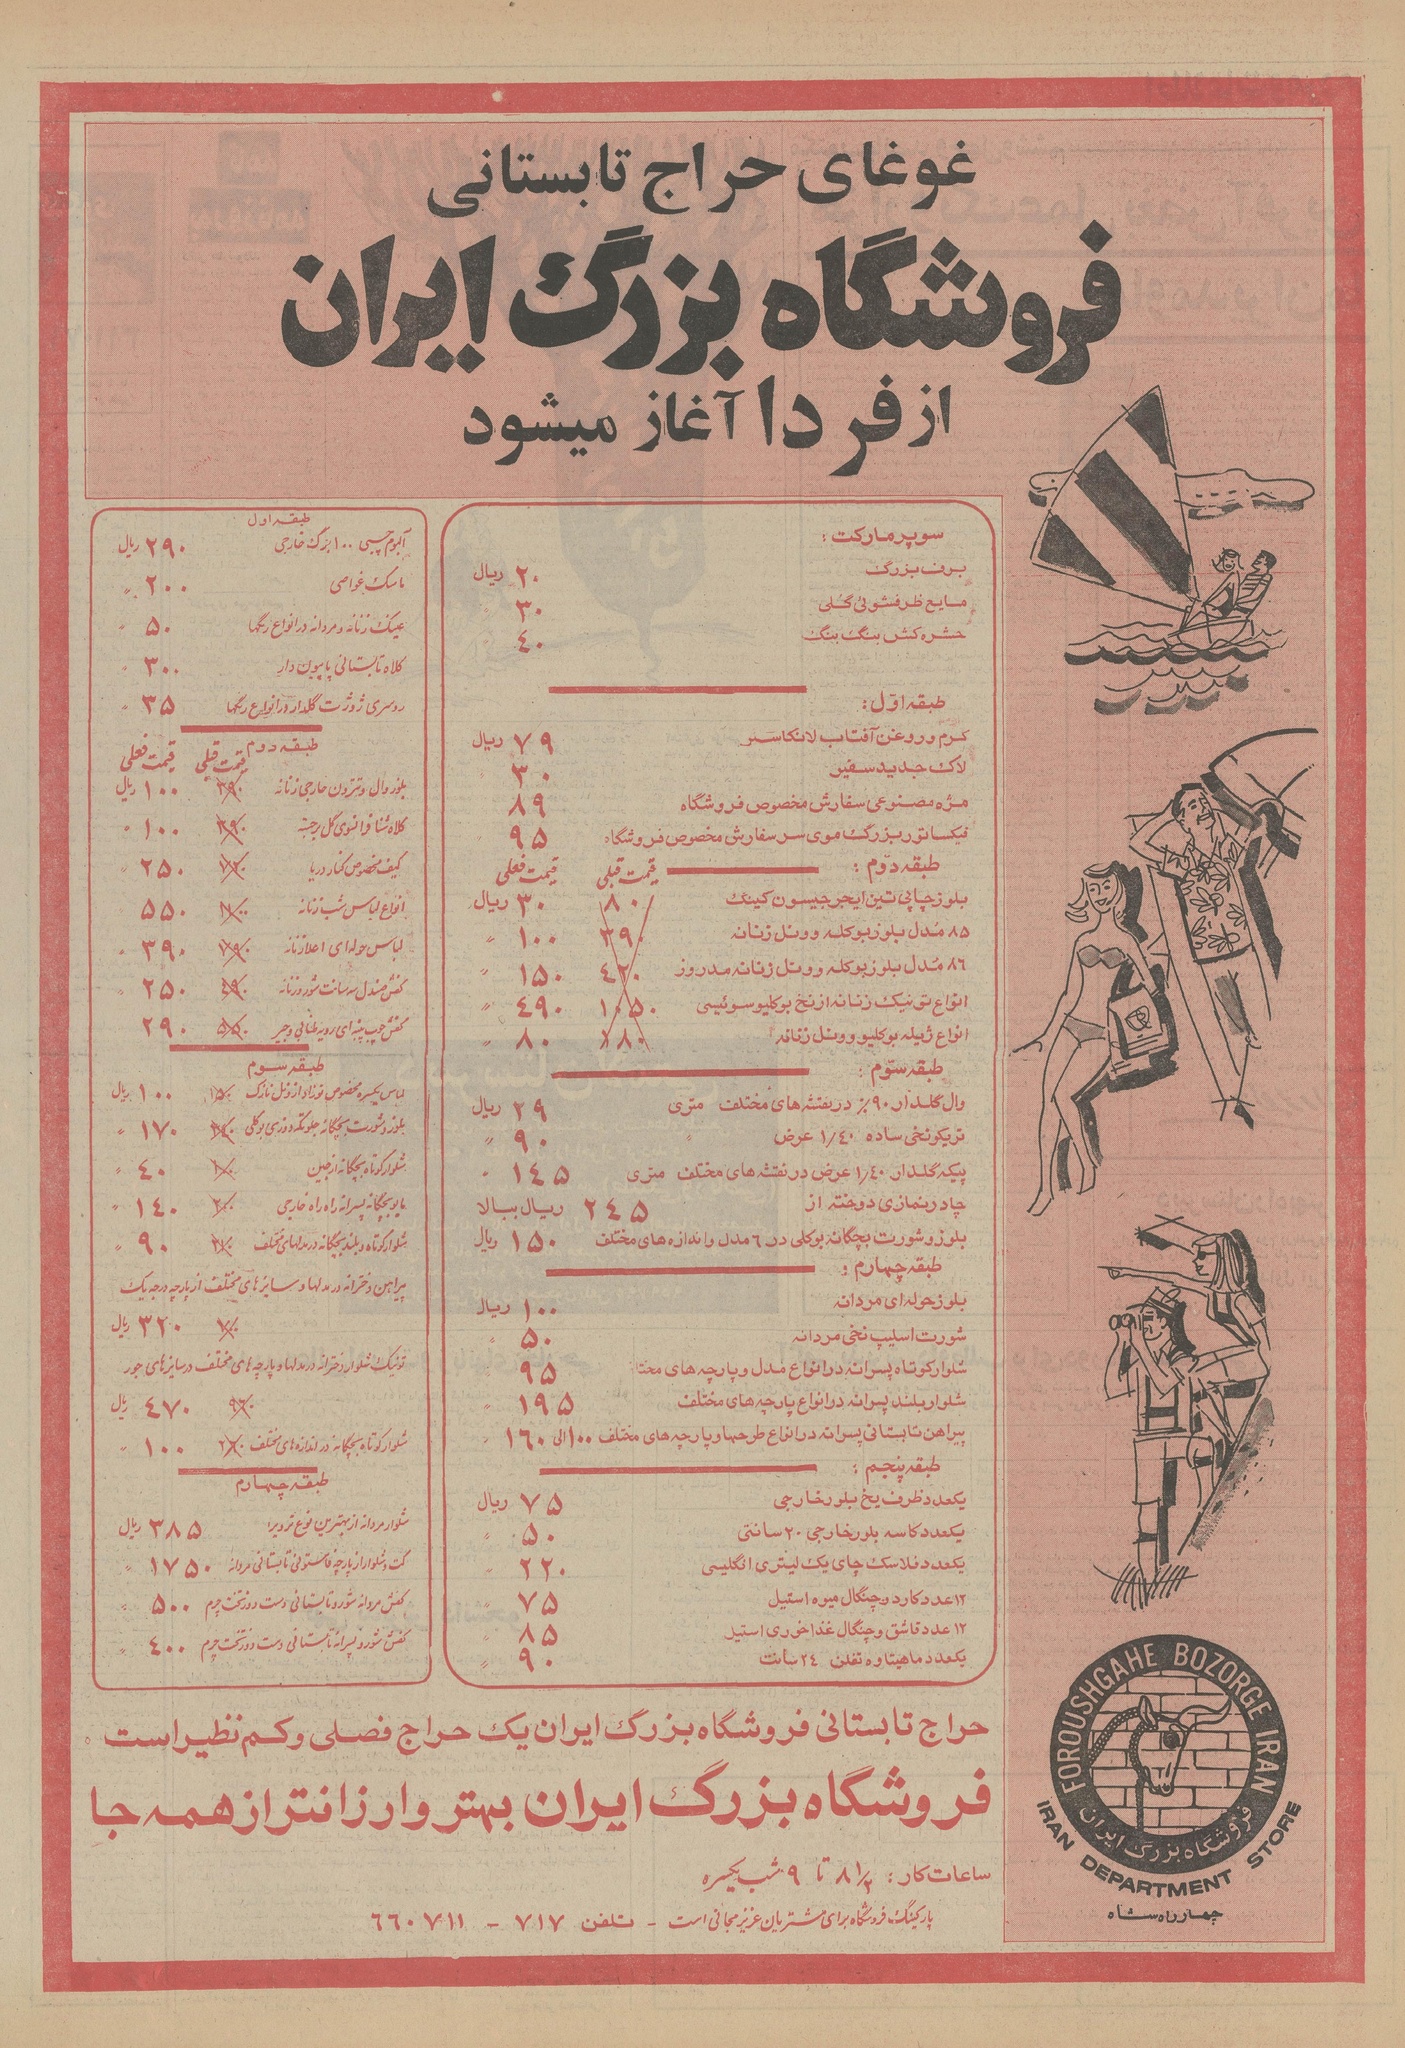 غوغای حراج تابستانی
فروشگاه بزرگ ایران
از فردا آغاز میشود
سوپر مارکت :
برف بزرگ ۲۰ ریال
مایع ظرفشوئی گلی ۳۰ "
حشره کش بنگ بنگ ۴۰ "
طبقه اوّل :
کرم و روغن آفتاب لانکاستر ۷۹ ریال
لاک جدید سفیر ۳۰ "
مژه مصنوعی سفارش مخصوص فروشگاه ۸۹
فیکساتور بزرگ موی سر سفارش مخصوص فروشگاه ۹۵
طبقه دوّم : قیمت قبلی قیمت فعلی
بلوز چاپی تین ایجر جیسون کینگ ۸۰ ۳۰ ریال
۸۵ مُدل بلوز بوکله و ونل زنانه ۳۹۰ ۱۰۰ "
۸۶ مُدل بلوز بوکله و ونل زنانه مد روز ۴۲۰ ۱۵۰ "
انواع تی نیک زنانه از نخ بوکلیو سوئیسی ۱۰۵۰ ۴۹۰ "
انواع ژیله بوکلیو و ونل زنانه ۱۸۰ ۸۰ "
طبقه سوّم :
وال گلدار ۹۰٪ در نقشه های مختلف متری ۲۹ ریال
تریکو نخی ساده ۱/۴۰ عرض " ۹۰ "
پیکه گلدار ۱/۴۰ عرض در نقشه های مختلف متری ۱۴۵ "
چادر نمازی دوخته از ۲۴۵ ریال ببالا
بلوز و شورت بچگانه بوکلی در ۶ مدل و اندازه های مختلف ۱۵۰ ریال
طبقه چهارم :
بلوز حوله ای مردانه ۱۰۰ ریال
شورت اسلیپ نخی مردانه ۵۰ "
شلوار کوتاه پسرانه در انواع مدل و پارچه های ۹۵ "
شلوار بلند پسرانه در انواع پارچه های مختلف ۱۹۵ "
پیراهن تابستانی پسرانه در انواع طرحها و پارچه های مختلف ۱۰۰ الی ۱۶۰ "
طبقه پنجم :
یکعدد ظرف یخ بلور خارجی ۷۵ ریال
یکعدد کاسه بلور خارجی ۲۰ سانتی ۵۰ "
یکعدد فلاسک چای یک لیتری انگلیسی ۲۲۰ "
۱۲ عدد کارد و چنگال میوه استیل ۷۵ "
۱۲ عدد قاشق و چنگال غذا خوری استیل ۸۵ "
یکعدد ماهیتاوه تفلن ۲۴ سانت ۹۰ "
طبقه اول
آلبوم چسبی ۱۰۰ برگ خارجی ۲۹۰ ریال
ماسک غواصی ۲۰۰ "
عینک زنانه و مردانه در انواع رنگها ۵۰ "
کلاه تابستانی پاپیون دار ۳۰۰ "
روسری ژرژت گلدار در انواع رنگها ۳۵ "
طبقه دوم قیمت قبلی قیمت فعلی
بلوز وال و تترون خارجی زنانه ۲۹۰ ۱۰۰ ریال
کلاه شنا فانتزی گل برجسته ۲۹۰ ۱۰۰ "
کیف مخصوص کنار دریا ۲۵۰ "
انواع لباس شب زنانه ۵۵۰
لباس حوله ای اعلا زنانه ۳۹۰ "
کفش صندل سه سانت شورو زنانه ۴۹۰ ۲۵۰ "
کفش چوب پنبه ای رویه طنابی و جیر ۵۵۰ ۲۹۰
طبقه سوم
لباس یکسره مخصوص نوزاد از ونل نازک ۱۵۰ ۱۰۰ ریال
بلوز و شورت بچگانه جلو تکمه دوزی بوکلی ۱۷۰ "
شلوار کوتاه بچگانه از جین ۴۰ "
مایو بچگانه پسرانه راه راه خارجی ۱۴۰ "
شلوار کوتاه و بلند بچگانه در مدلهای مختلف ۹۰ "
پیراهن دخترانه در مدلها و سایزهای مختلف از پارچه درجه یک
۳۲۰ ریال
تونیک شلوار دخترانه در مدلها و پارچه های مختلف در سایزهای جور
۴۷۰ ریال
شلوار کوتاه بچگانه در اندازه های مختلف ۱۰۰ "
طبقه چهارم
شلوار مردانه از بهترین نوع ترویرا ۳۸۵ ریال
کت و شلوار از پارچه فاستونی تابستانی مردانه ۱۷۵۰ "
کفش مردانه شورو تابستانی دست دوز تخت چرم ۵۰۰ "
کفش شورو پسرانه تابستانی دست دوز تخت چرم ۴۰۰ "
حراج تابستانی فروشگاه بزرگ ایران یک حراج فصلی و کم نظیر است .
فروشگاه بزرگ ایران بهتر و ارزانتر از همه جا
ساعات کار : ۸ ۱/۲ تا ۹ شب یکسره
پارکینگ فروشگاه برای مشتریان عزیز مجانی است - تلفن ۷۱۷ - ۶۶۰۷۱۱
FOROUSHGAHE BOZORGE IRAN
فروشگاه بزرگ ایران
IRAN DEPARTMENT STORE
چهارراه شاه